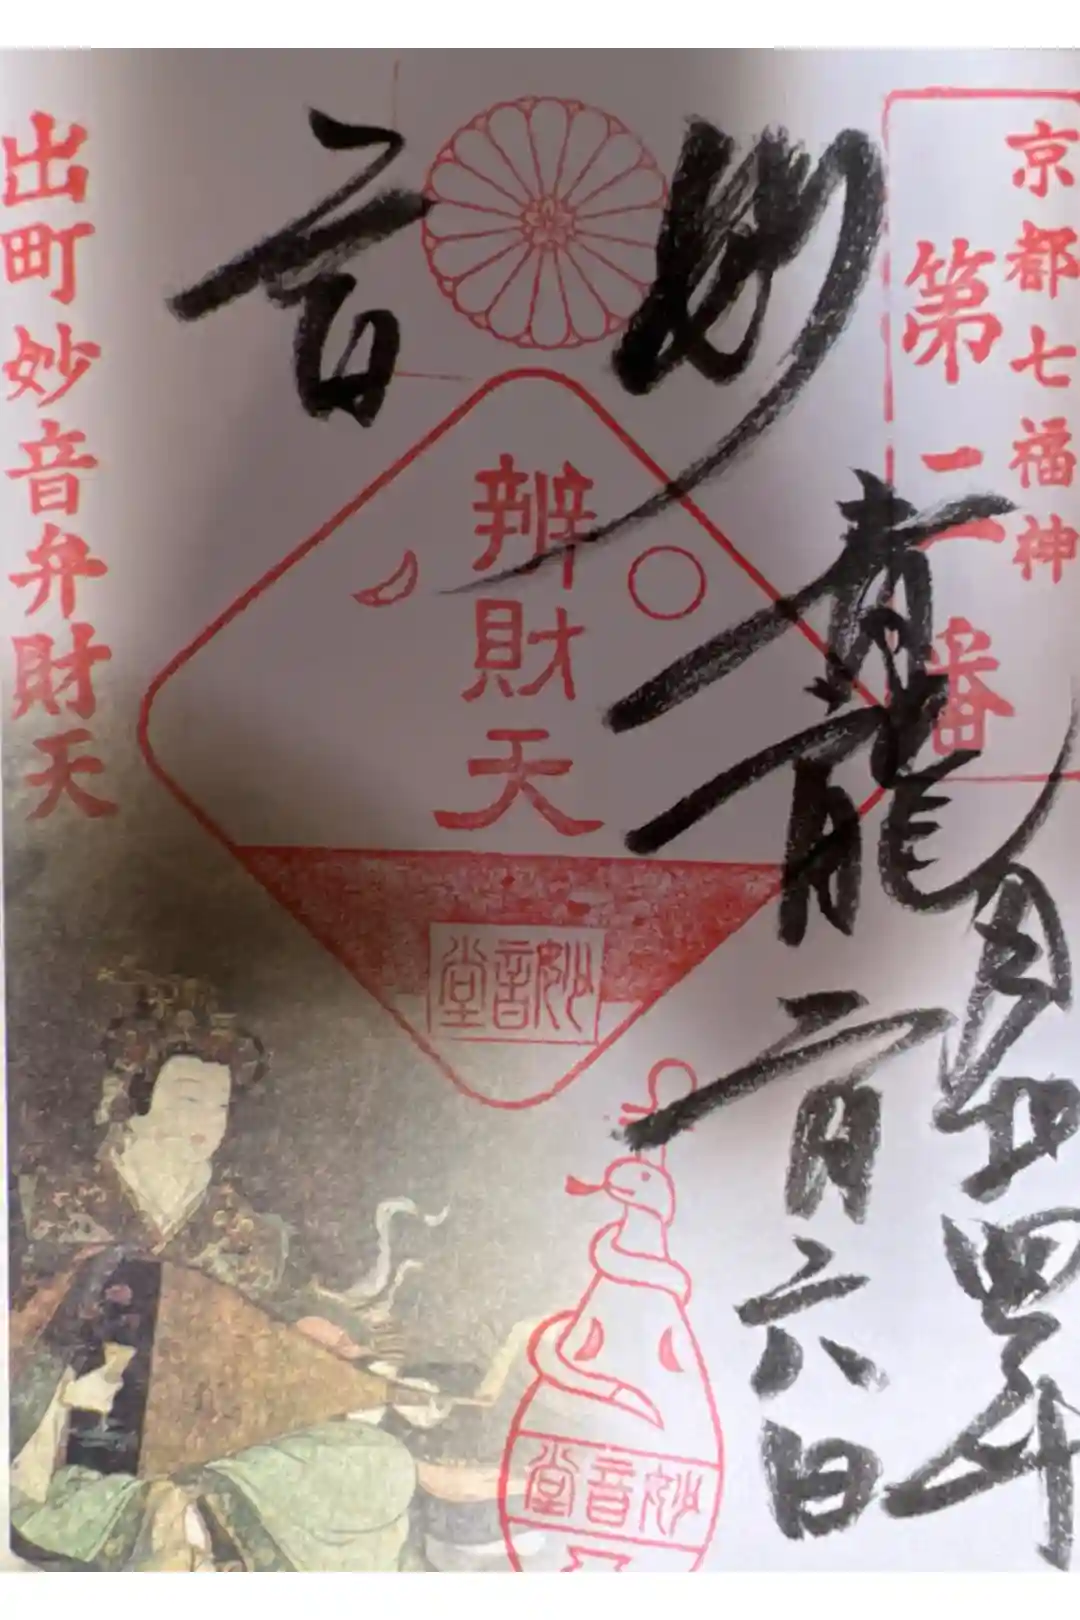 京都七福神
第二番
四年
青龍
二月六日
妙音
辨財天
妙音堂
妙音堂
出町妙音弁財天